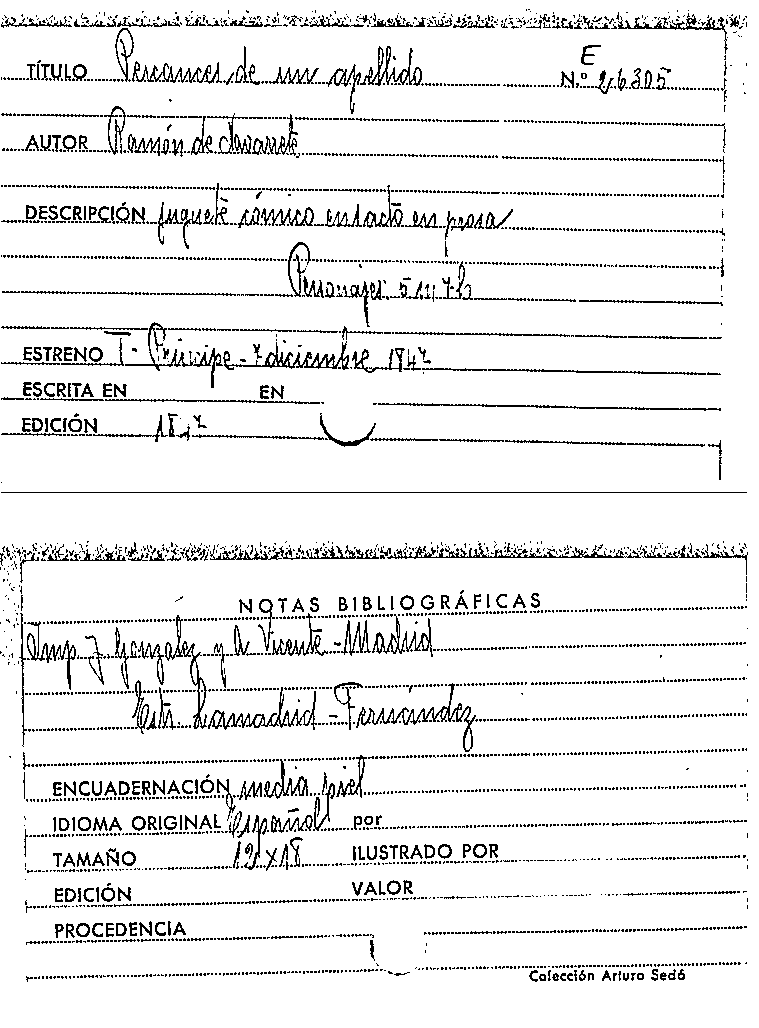 TÍTULO Percances de un apellido E
N.º 26305
AUTOR Ramón de Navarrete
DESCRIPCIÓN juguete cómico en 1 acto en prosa
Personajes 5 m 7 h
ESTRENO T. Príncipe - 7 diciembre 1847
ESCRITA EN EN
EDICIÓN
NOTAS BIBLIOGRÁFICAS
Imp J González y A Vicente - Madrid
Estr. Lamadrid - Fernández
ENCUADERNACIÓN media piel
IDIOMA ORIGINAL Español por
TAMAÑO 12 x 18 ILUSTRADO POR
EDICIÓN VALOR
PROCEDENCIA
Colección Arturo Sedó